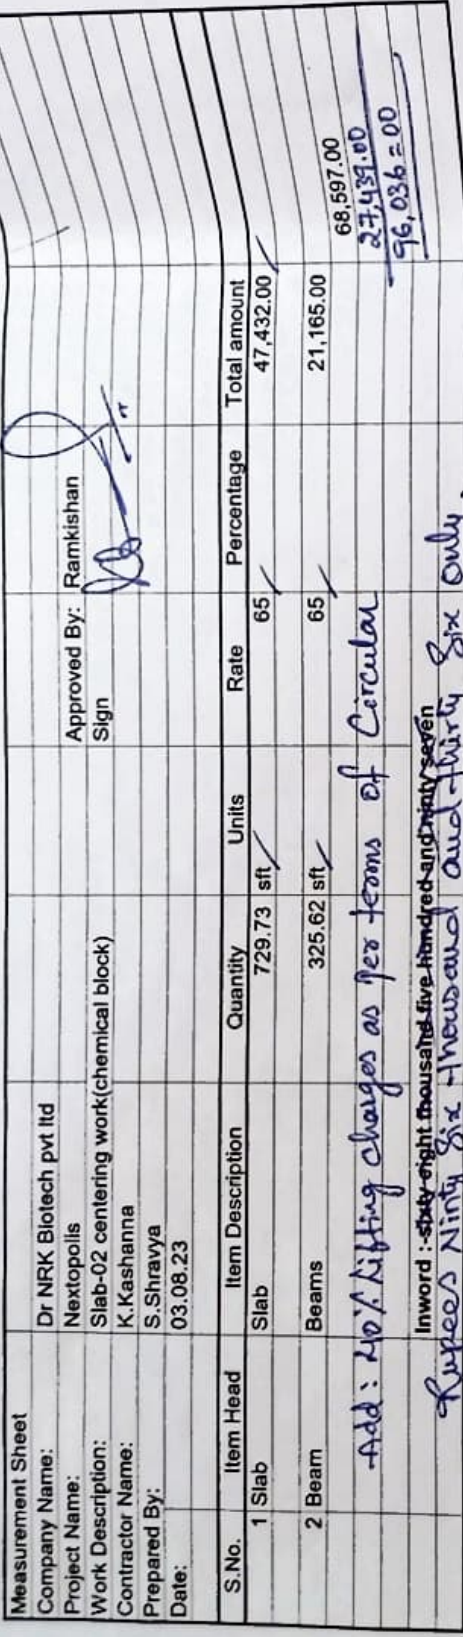 Measurement Sheet
Company Name: Dr NRK Biotech pvt ltd
Project Name: Nextopolis Approved By: Ramkishan
Work Description: Slab-02 centering work(chemical block) Sign
Contractor Name: K.Kashanna
Prepared By: S.Shravya
Date: 03.08.23
S.No. Item Head Item Description Quantity Units Rate Percentage Total amount
1 Slab Slab 729.73 sft 65 47,432.00
2 Beam Beams 325.62 sft 65 21,165.00
68,597.00
Add : 40% lifting charges as per terms of Circular 27,439.00
96,036=00
Inword :-sixty eight thousand five hundred and ninty seven
Rupees Ninty Six thousand and thirty Six only.